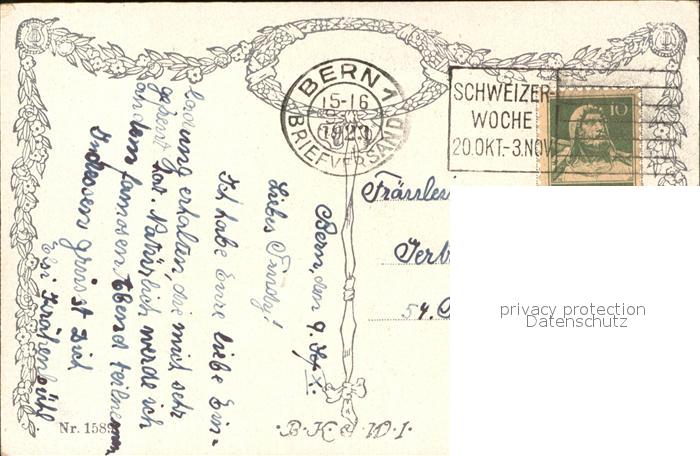 BERN 1
15-16
BRIEFVERSAND
SCHWEIZER-
WOCHE
20.OKT.-3.NOV.
10
Bern, den 9.
Liebes Trudy!
Ich habe Eure liebe Ein-
ladung erhalten, die mich sehr
gefreut hat. Natürlich werde ich
an dem famosen Abend teilnehmen.
Indessen grüsst Dich
Elsi Krähenbühl
Fräulein
54.
privacy protection
Datenschutz
Nr. 1589
B.K.W.I.